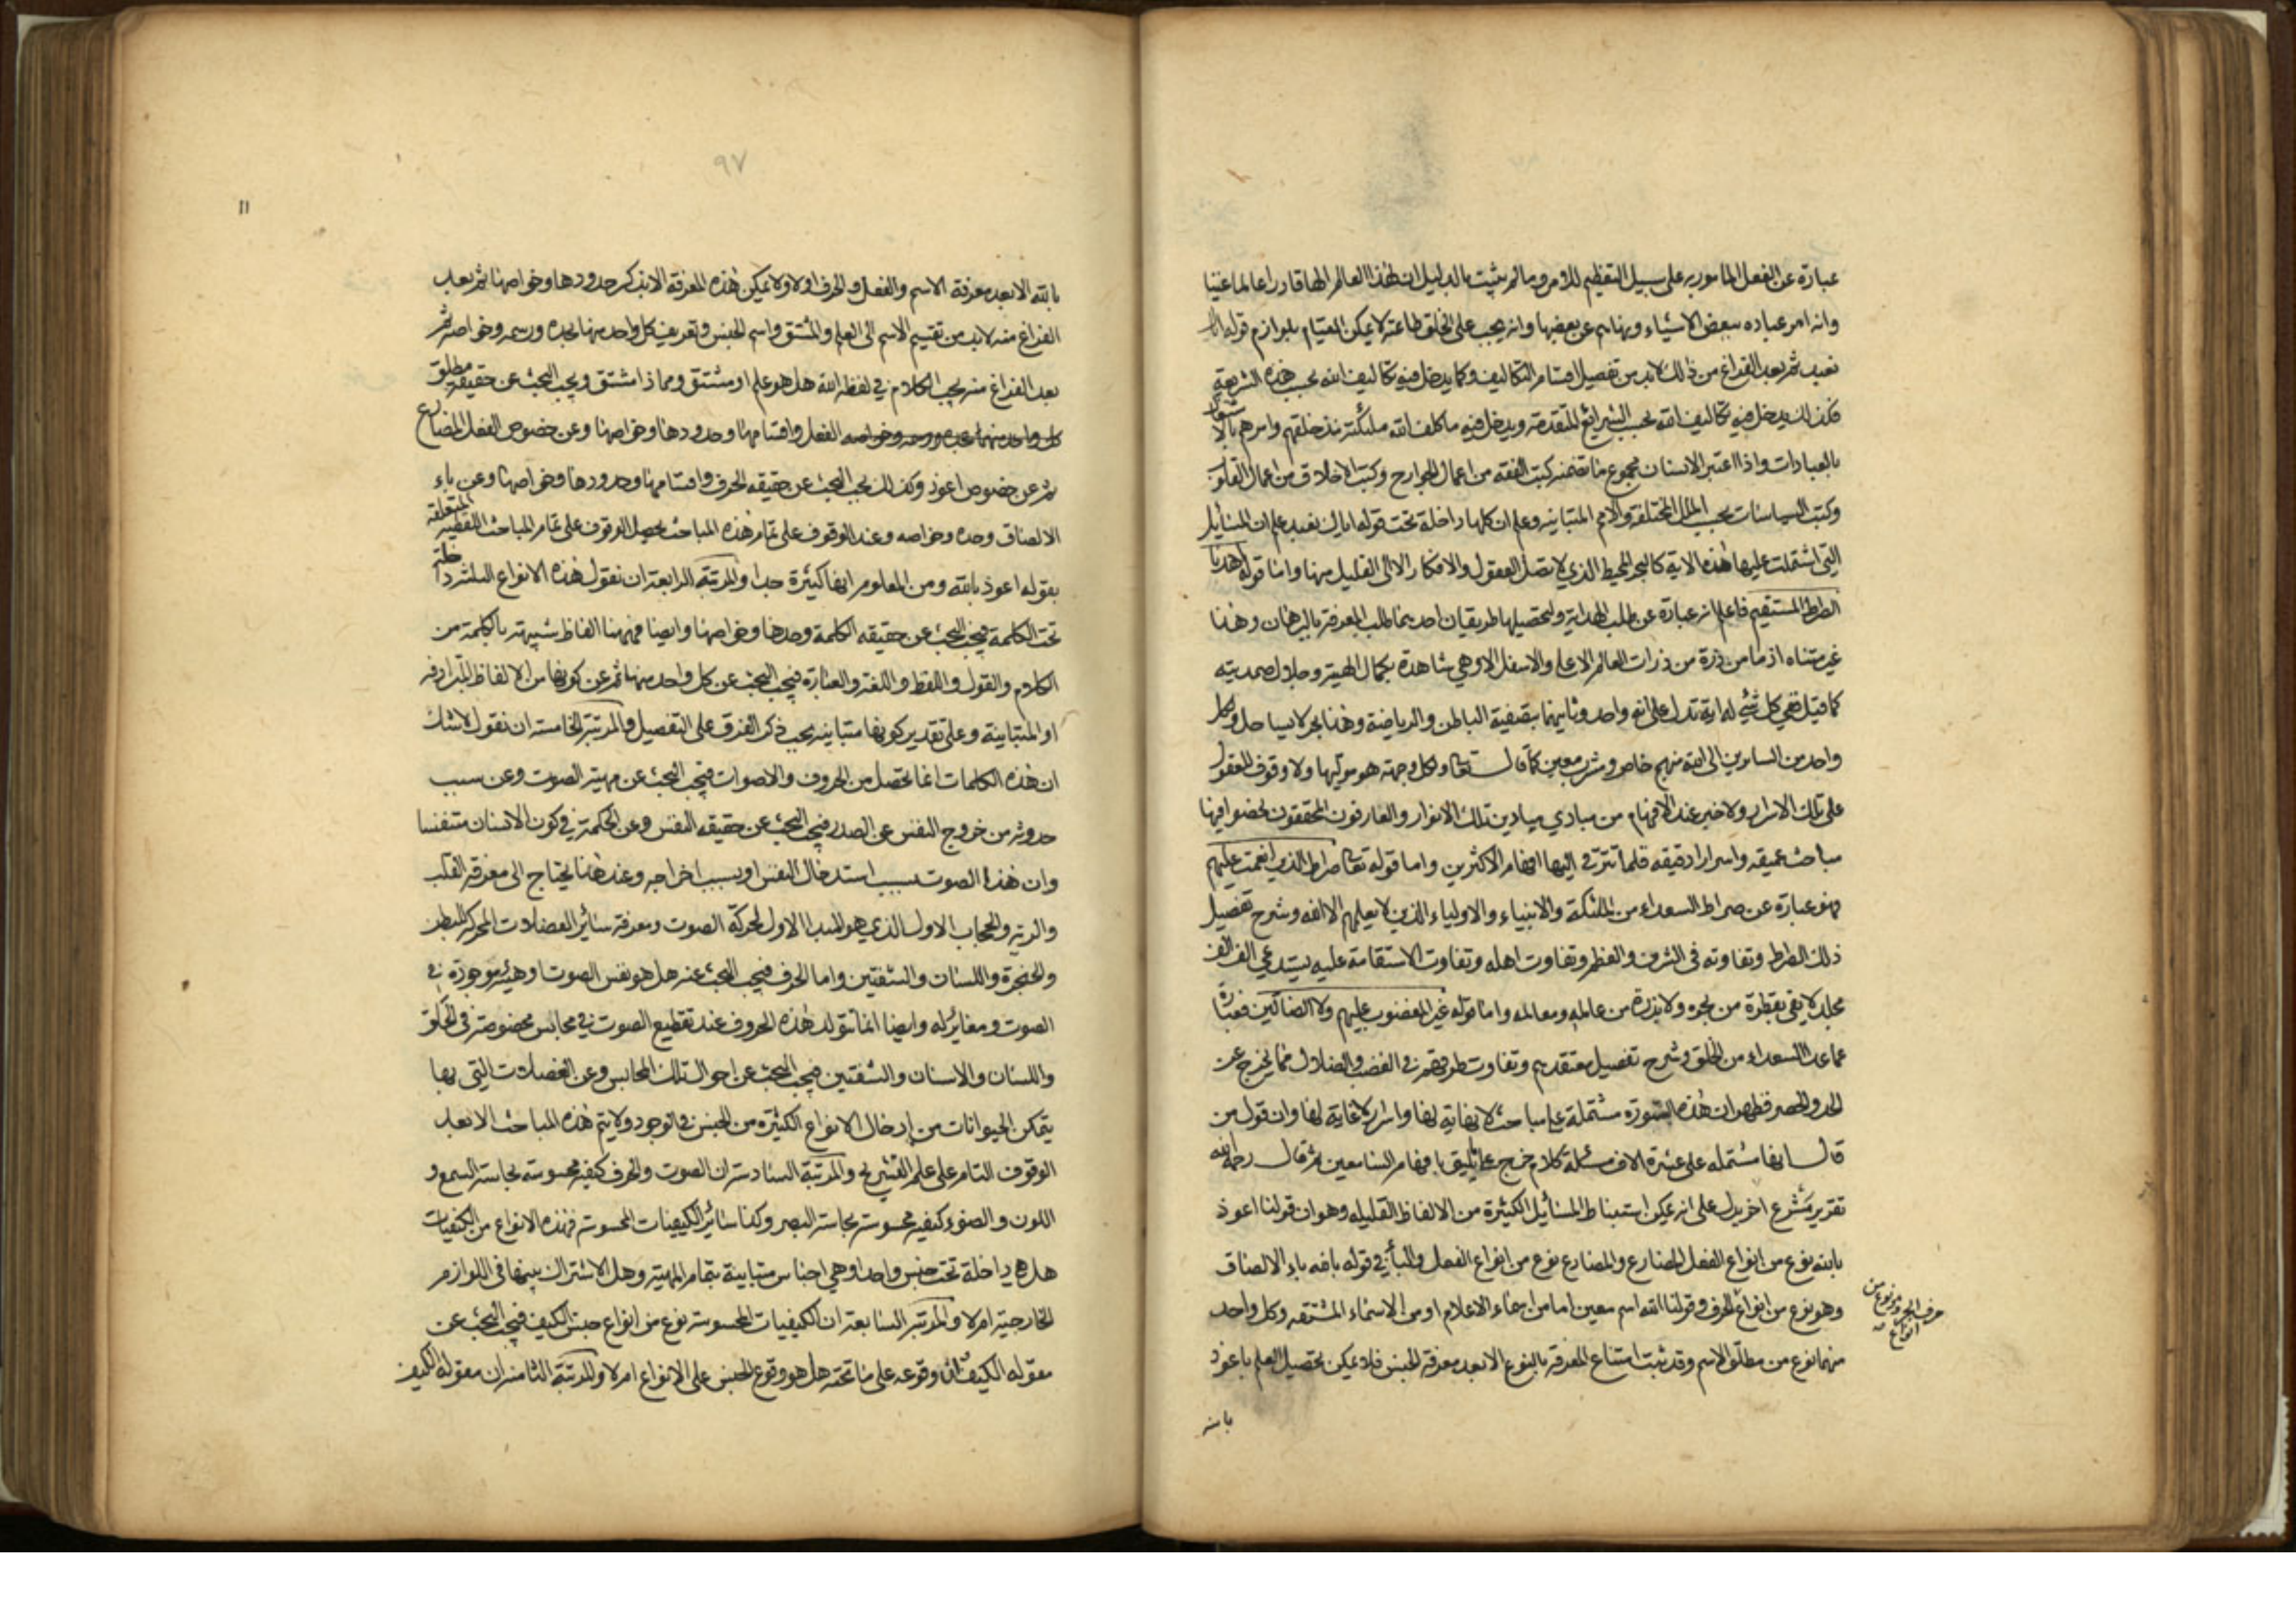 عبارة عن الفعل المامور به على سبيل التعظيم للامر وما لم يثبت بالدليل ان لهذا العالم الها قادرا عالما غنيا
وانه امر عباده ببعض الاشياء ونهاهم عن بعضها وانه يجب على الخلق طاعته لا يمكن القيام بلوازم قوله اياك
نعبد ثم بعد الفراغ من ذلك لابد من تفصيل اقسام التكاليف وكما يدخل فيه تكاليف الله بحسب هذه الشريعة
فكذلك يدخل فيه تكاليف الله بحسب الشرائع المتقدمة ويدخل فيه ما كلف الله ملئكته منذ خلقهم وامرهم بالاشتغال
بالعبادات واذا اعتبر الانسان مجموع ما تضمنه كتب الفقه من اعمال الجوارح وكتب الاخلاق من اعمال القلوب
وكتب السياسات بحسب الملل المختلفة والامم المتباينه وعلم ان كلها داخلة تحت قوله اياك نعبد علم ان المسائل
التي اشتملت عليها هذه الاية كالبحر المحيط الذي لا تصل العقول والافكار الا الى القليل منها واما قوله اهدنا
الصراط المستقيم فاعلم انه عبارة عن طلب الهداية ولتحصيلها طريقان احديهما طلب المعرفة بالبرهان وهذا
غير متناه اذ ما من ذرة من ذرات العالم الاعلى والاسفل الا وهي شاهدة بكمال الهيته وجلال صمديته
كما قيل ففي كل شيء له اية تدل على انه واحد وثانيهما بتصفية الباطن والرياضة وهذا بحر لا يساحل ولكل
واحد من السايرين الى الله منهج خاص ومشرب معين كما قال تعالى ولكل وجهة هو موليها ولا وقوف للعقول
على تلك الاسرار ولا خبر عند الافهام من مبادي ميادين تلك الانوار والعارفون المحققون لخضوا فيها
مباحث عميقه واسرارا دقيقه قلما تترقى اليها افهام الاكثرين واما قوله تعالى صراط الذين انعمت عليهم
فهو عبارة عن صراط السعداء من الملئكة والانبياء والاولياء الذين لا يعلمهم الا الله وشرح تفصيل
ذلك الصراط وتفاوته في الشرف والعظم وتفاوت اهله وتفاوت الاستقامة عليه يستدعي الف الف
مجلد لا يفي بقطرة من بحره ولا بذرة من عالمه ومعالمه واما قوله غير المغضوب عليهم ولا الضالين فعبارة
عما عدا السعداء من الخلق وشرح تفصيل معتقدهم وتفاوت طرقهم في الغضب والضلال مما يخرج عن
الحد والحصر فظهر ان هذه السورة مشتملة على مباحث لا نهاية لها واسرار لا غاية لها وان قول من
قال انها مشتمله على عشرة الاف مسئلة كلام خرج على ما يليق بافهام السامعين ثم قال رحمه الله
تقرير مشرع اخر يدل على انه يمكن استنباط المسائل الكثيرة من الالفاظ القليله وهو ان قولنا اعوذ
بالله نوع من انواع الفعل المضارع والمضارع نوع من انواع الفعل والباء في قوله بالله باء الالصاق
وهو نوع من انواع الحرف وقولنا الله اسم معين اما من اسماء الاعلام او من الاسماء المشتقه وكل واحد
منهما نوع من مطلق الاسم وقد ثبت امتناع المعرفة بالنوع الا بعد معرفة الجنس فلا يمكن تحصيل العلم باعوذ
حرف الجر وهو نوع من
انواع
بالله
٩٧
١١
بالله الا بعد معرفة الاسم والفعل والحرف اولا ولا يمكن هذه المعرفة الا بذكر حدودها وخواصها ثم بعد
الفراغ منه لابد من تقسيم الاسم الى العلم والمشتق واسم الجنس وتعريف كل واحد منها بحده ورسمه وخواصه ثم
بعد الفراغ منه يجب الكلام في لفظه الله هل هو علم او مشتق ومماذا اشتق ويجب البحث عن حقيقة مطلق
كل واحد منهما بحده ورسمه وخواصه الفعل واقسامها وحدودها وخواصها وعن خصوص الفعل المضارع
ثم عن خصوص اعوذ وكذلك يجب البحث عن حقيقه الحرف واقسامها وحدودها وخواصها وعن باء
الالصاق وحده وخواصه وعند الوقوف على تمام هذه المباحث يحصل الوقوف على تمام المباحث اللفظيه المتعلقه
بقوله اعوذ بالله ومن المعلوم انها كثيرة جدا والمرتبة الرابعة ان نقول هذه الانواع الثلثة داخلة
تحت الكلمة فيجب البحث عن حقيقه الكلمة وحدها وخواصها وايضا فههنا الفاظ شبيهة بالكلمة من
الكلام والقول واللفظ واللغة والعبارة فيجب البحث عن كل واحد منها ثم عن كونها من الالفاظ المترادفه
او المتباينة وعلى تقدير كونها متباينه يجب ذكر الفرق على التفصيل والمرتبة الخامسة ان نقول لا شك
ان هذه الكلمات انما تحصل من الحروف والاصوات فيجب البحث عن مهية الصوت وعن سبب
حدوثه من خروج النفس عن الصدر فيجب البحث عن حقيقه النفس وعن الحكمة في كون الانسان متنفسا
وان هذا الصوت بسبب استدخال النفس او بسبب اخراجه وعند هذا يحتاج الى معرفة القلب
والرية والحجاب الاول الذي هو المبدا الاول لحركة الصوت ومعرفة سائر العضلات المحركة للبطن
والحنجرة واللسان والشفتين واما الحرف فيجب البحث عنه هل هو نفس الصوت او هيئة موجودة في
الصوت ومغايرة له وايضا انما تتولد هذه الحروف عند تقطيع الصوت في محابس مخصوصة في الحلق
واللسان والاسنان والشفتين فيجب البحث عن احوال تلك المحابس وعن العضلات التي بها
يتمكن الحيوانات من ادخال الانواع الكثيرة من الجنس في الوجود ولا يتم هذه المباحث الا بعد
الوقوف التام على علم التشريح والمرتبة السادسة ان الصوت والحرف كيفية محسوسه بحاسة السمع و
اللون والضوء كيفيه محسوسة بحاسة البصر وكذا سائر الكيفيات المحسوسه فهذه الانواع من الكيفيات
هل هي داخلة تحت جنس واحد او هي اجناس متباينة بتمام المهية وهل الاشتراك بينها في اللوازم
الخارجية ام لا والمرتبة السابعة ان الكيفيات المحسوسة نوع من انواع جنس الكيف فيجب البحث عن
مقوله الكيف ان وقوعه على ما تحته هل هو وقوع الجنس على الانواع ام لا والمرتبة الثامنه ان مقولة الكيف